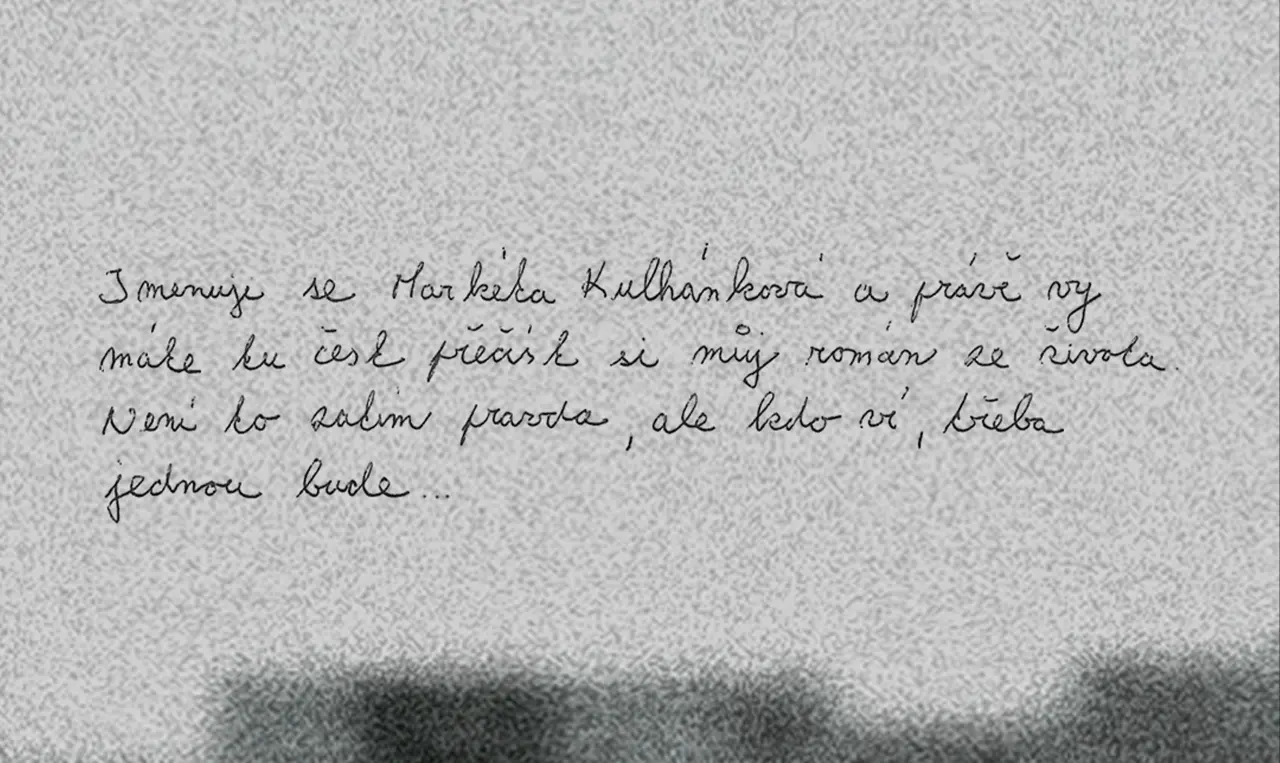 Jmenuji se Markéta Kulhánková a právě vy
máte tu čest přečíst si můj román ze života.
Není to zatim pravda, ale kdo ví, třeba
jednou bude...